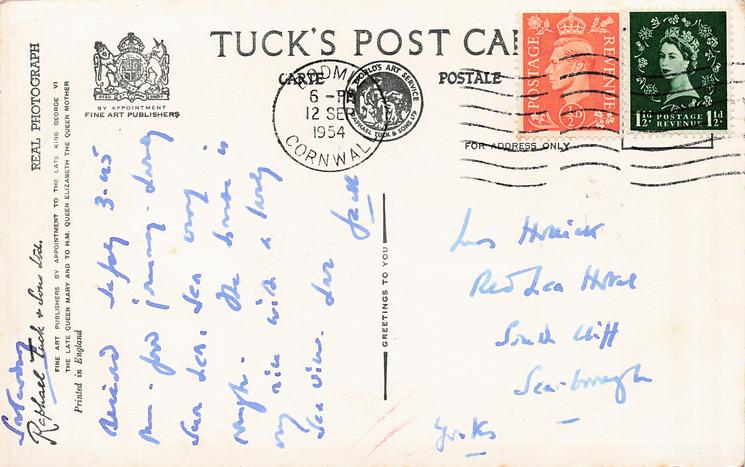 TUCK'S POST CA
CARTE POSTALE
BY APPOINTMENT
FINE ART PUBLISHERS
THE WORLD'S ART SERVICE
RAPHAEL TUCK & SONS LTD
6 - PM
12 SEP
1954
CORNWAL
POSTAGE REVENUE
½D
1½D POSTAGE 1½D
REVENUE
FOR ADDRESS ONLY
REAL PHOTOGRAPH
Raphael Tuck & Sons Ltd.
FINE ART PUBLISHERS BY APPOINTMENT TO THE LATE KING GEORGE VI
THE LATE QUEEN MARY AND TO H.M. QUEEN ELIZABETH THE QUEEN MOTHER
Printed in England
GREETINGS TO YOU
Saturday
Arrived safely 3-45
p.m. good journey. Lovely
sun
rough. The house is
very nice with a lovely
sea view. Love
Jack
Red Lea Hotel
South Cliff
Scarborough
Yorks